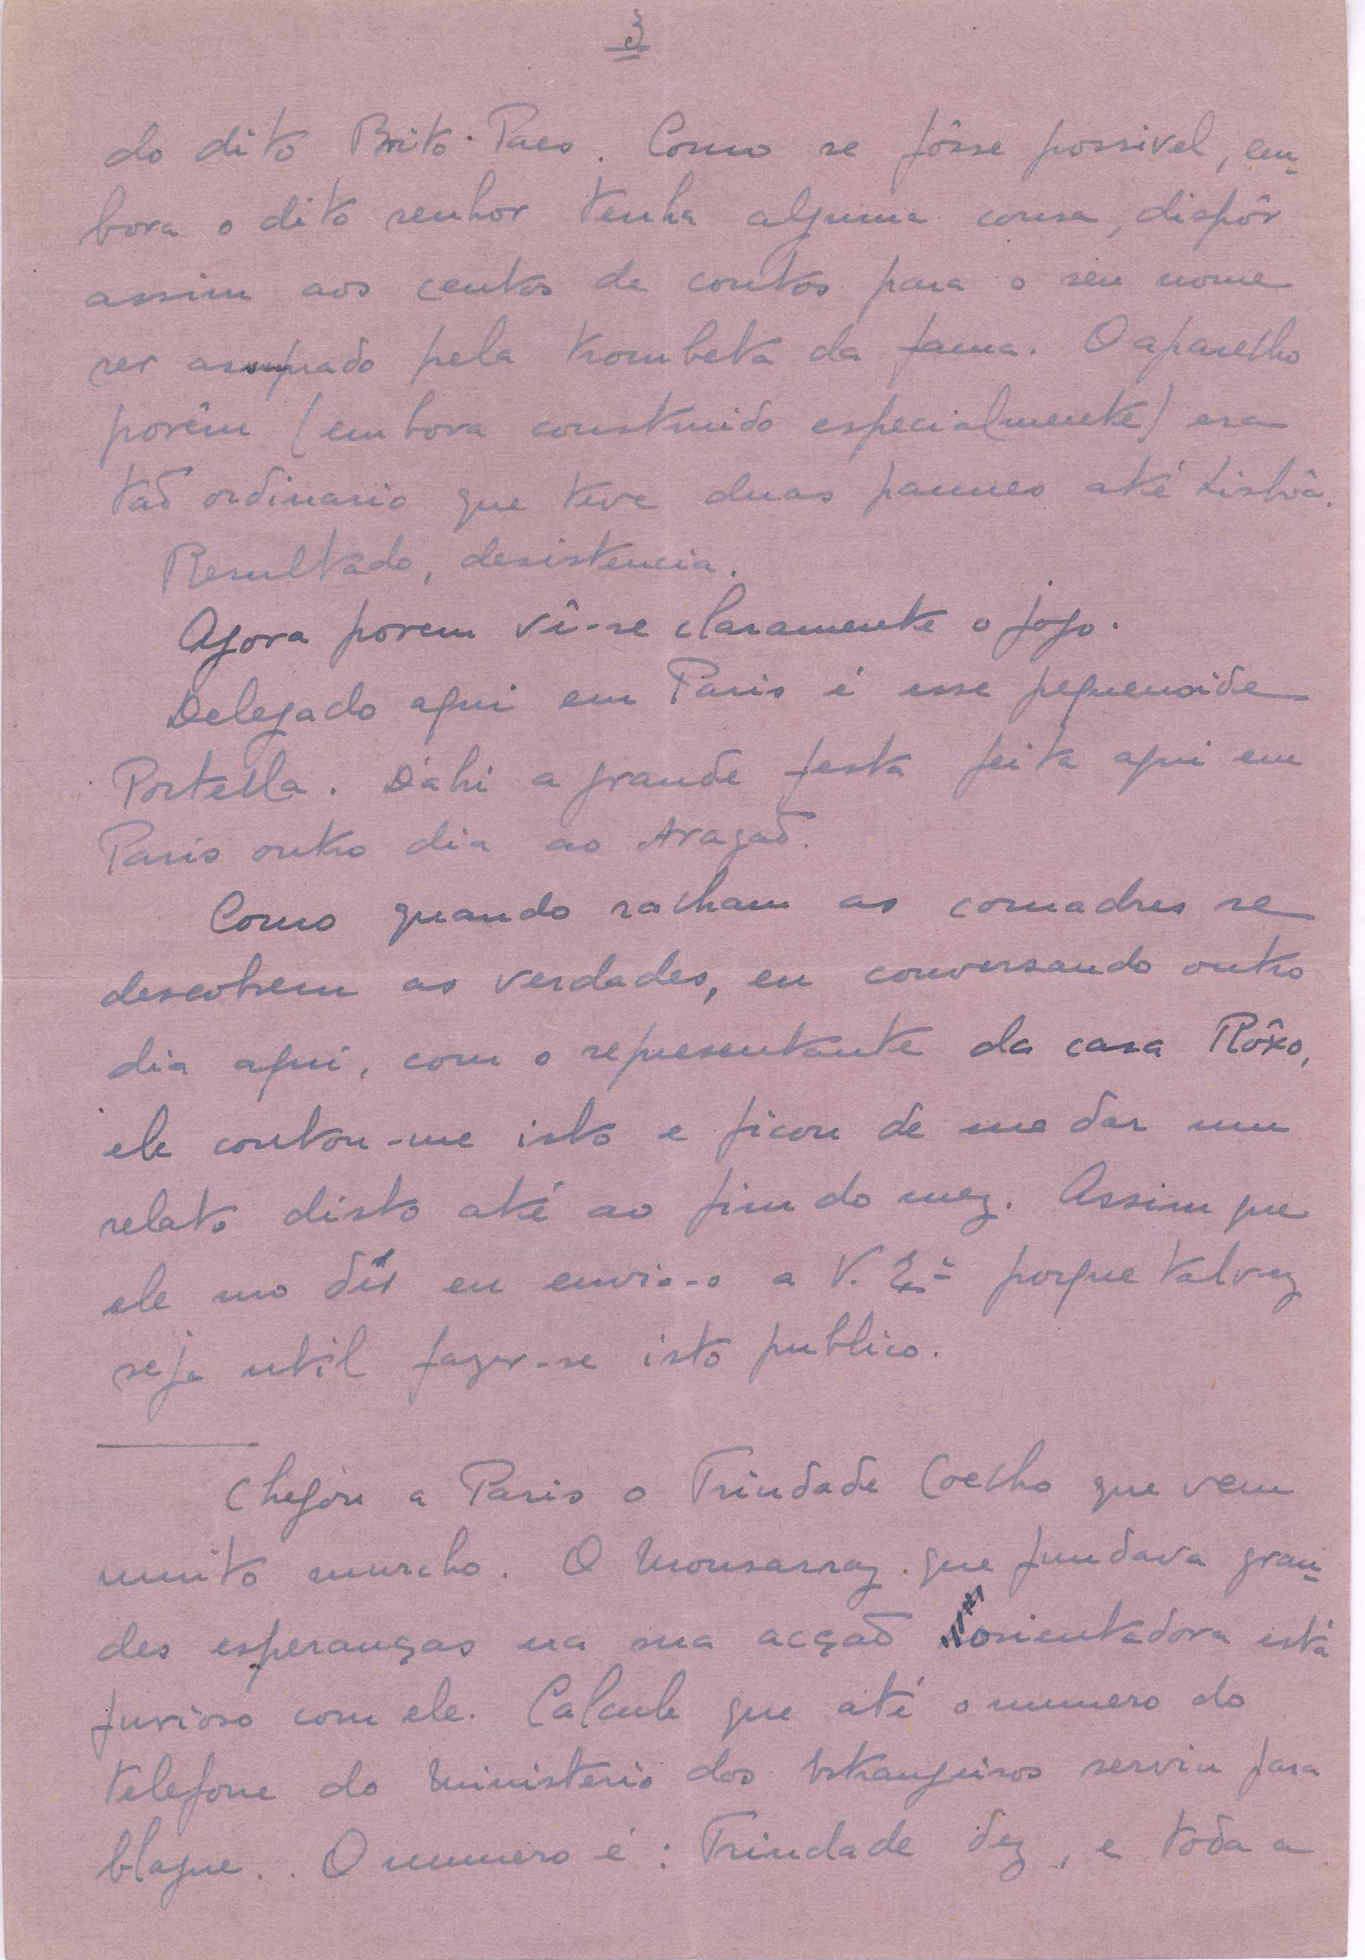 3
do dito Brito-Paes. Como se fôsse possivel, em-
bora o dito senhor tenha alguma cousa, dispôr
assim aos centos de contos para o seu nome
ser assoprado pela trombeta da fama. O aparelho
porêm (embora construido especialmente) era
taõ ordinario que teve duas pannes até Lisbôa.
Resultado, desistencia.
Agora porem vê-se claramente o jogo.
Delegado aqui em Paris é esse pequenoide
Portella. Dáhi a grande festa feita aqui em
Paris outro dia ao Aragaõ.
Como quando racham as comadres se
descobrem as verdades, eu conversando outro
dia aqui, com o representante da casa Rôxo,
ele contou-me isto e ficou de me dar um
relato disto até ao fim do mez. Assim que
ele mo dê eu envio-o a V. Exª porque talvez
seja util fazer-se isto publico.
Chegou a Paris o Trindade Coelho que vem
muito murcho. O Monsarraz que fundava gran-
des esperanças na sua acçaõ orientadora está
furioso com ele. Calcule que até o numero do
telefone do Ministerio dos Estrangeiros serviu para
blague.. O numero é: Trindade dez, e toda a